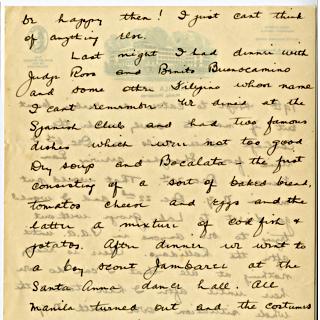 be happy then! I just cant think
of anything else.
Last night I had dinner with
Judge Ross and Benito Buencamino
and some other Filipino whose name
I cant remember. We dined at the
Spanish Club and had two famous
dishes which were not too good
Dry soup and Bacalata - the first
consisting of a sort of baked bread,
tomatos cheese and eggs and the
latter a mixture of codfish &
potatos. After dinner we went to
a boy scout Jamboree at the
Santa Anna dance hall. All
Manila turned out and the costumes